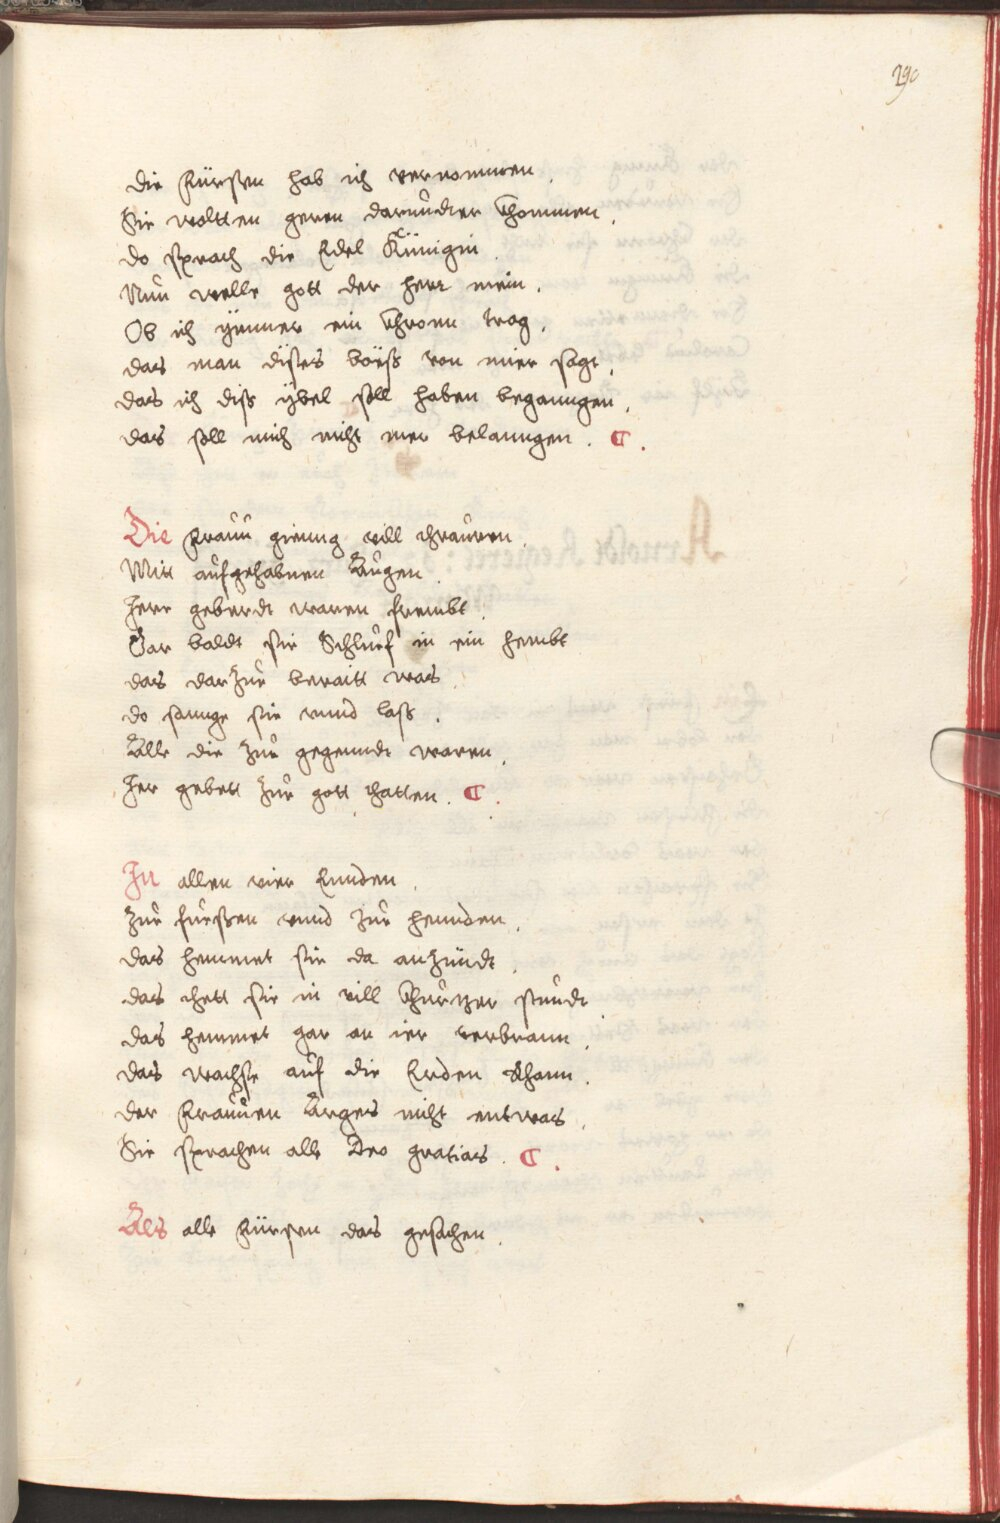 290
die Fürsten hab ich vernommen.
Sie woltten geren darundter khommen.
do sprach die Edel Künigin.
Nun welle gott der herr mein.
Ob ich ÿmmer ein khronn trag.
das man dises böeß von mier sagt.
das ich diß ÿbel soll haben beganngen.
das soll mich nicht mer belanngen. C.
Die Frauu gienng vill thrauren.
Mitt aufgehabnen Augen.
Herr geberdt waren frembt.
Gar baldt sie Schluf in ein hembt
das darzue beraitt was.
do sannge sie unnd laß.
Alle die zue gegenndt waren.
Ihr gebett zue gott thatten. C.
In allen vier Ennden.
Zue fuessen unnd zue hennden.
das hemmet sie da anzündt.
das thett sie in vill khurtzer stundt.
das hemmet gar an ier verbrann.
das wachse auf die Erden kham.
der Frauuen Arges nicht entwas.
Sie sprachen alle Deo gratias. C.
Als alle Fürsten das gesachen.